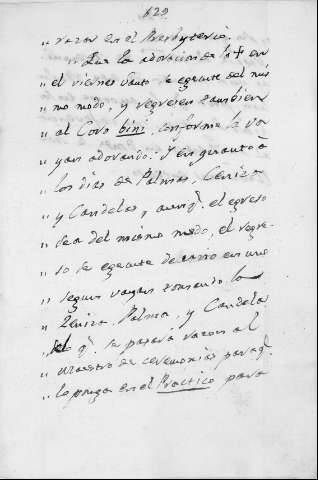 629
„ razon en el Presbyterio.
„ Que la adoracion de la + en
„ el viernes Santo se execute del mis
„ mo modo, y regresen tambien
„ al Coro bini conforme la va
„ yan adorando. Y en quanto à
„ los dias de Palmas, Ceniza
„ y Candelas, aunq.e el egreso
„ sea del mismo modo, el regre-
„ so se execute de uno en uno
„ segun vayan tomando la
„ Zeniza, Palma, y Candela
„ del q.e se pasará razon al
„ Maestro de ceremonias para q.e
„ lo ponga en el Practico para